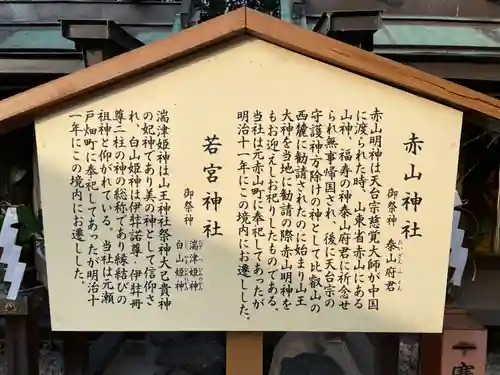 赤山神社
御祭神 泰山府君
赤山明神は天台宗慈覚大師が中国
に渡られた時、山東省赤山にある
山神、福寿の神泰山府君に祈念せ
られ無事帰国され、後に天台宗の
守護神方除けの神として比叡山の
西麓に勧請されたのに始まり山王
大神を当地に勧請の際赤山明神を
もお迎えしお祀りしたものである。
当社は元赤山町に奉祀してあったが
明治十一年にこの境内にお遷しした。
若宮神社
御祭神 湍津姫神
白山姫神
湍津姫神は山王神社祭神大己貴神
の妃神であり美の神として信仰さ
れ、白山姫神は伊弉諾尊・伊弉冊
尊二柱の神の総称であり縁結びの
祖神と仰がれている。当社は元瀬
戸畑町に奉祀してあったが明治十
一年にこの境内にお遷しした。